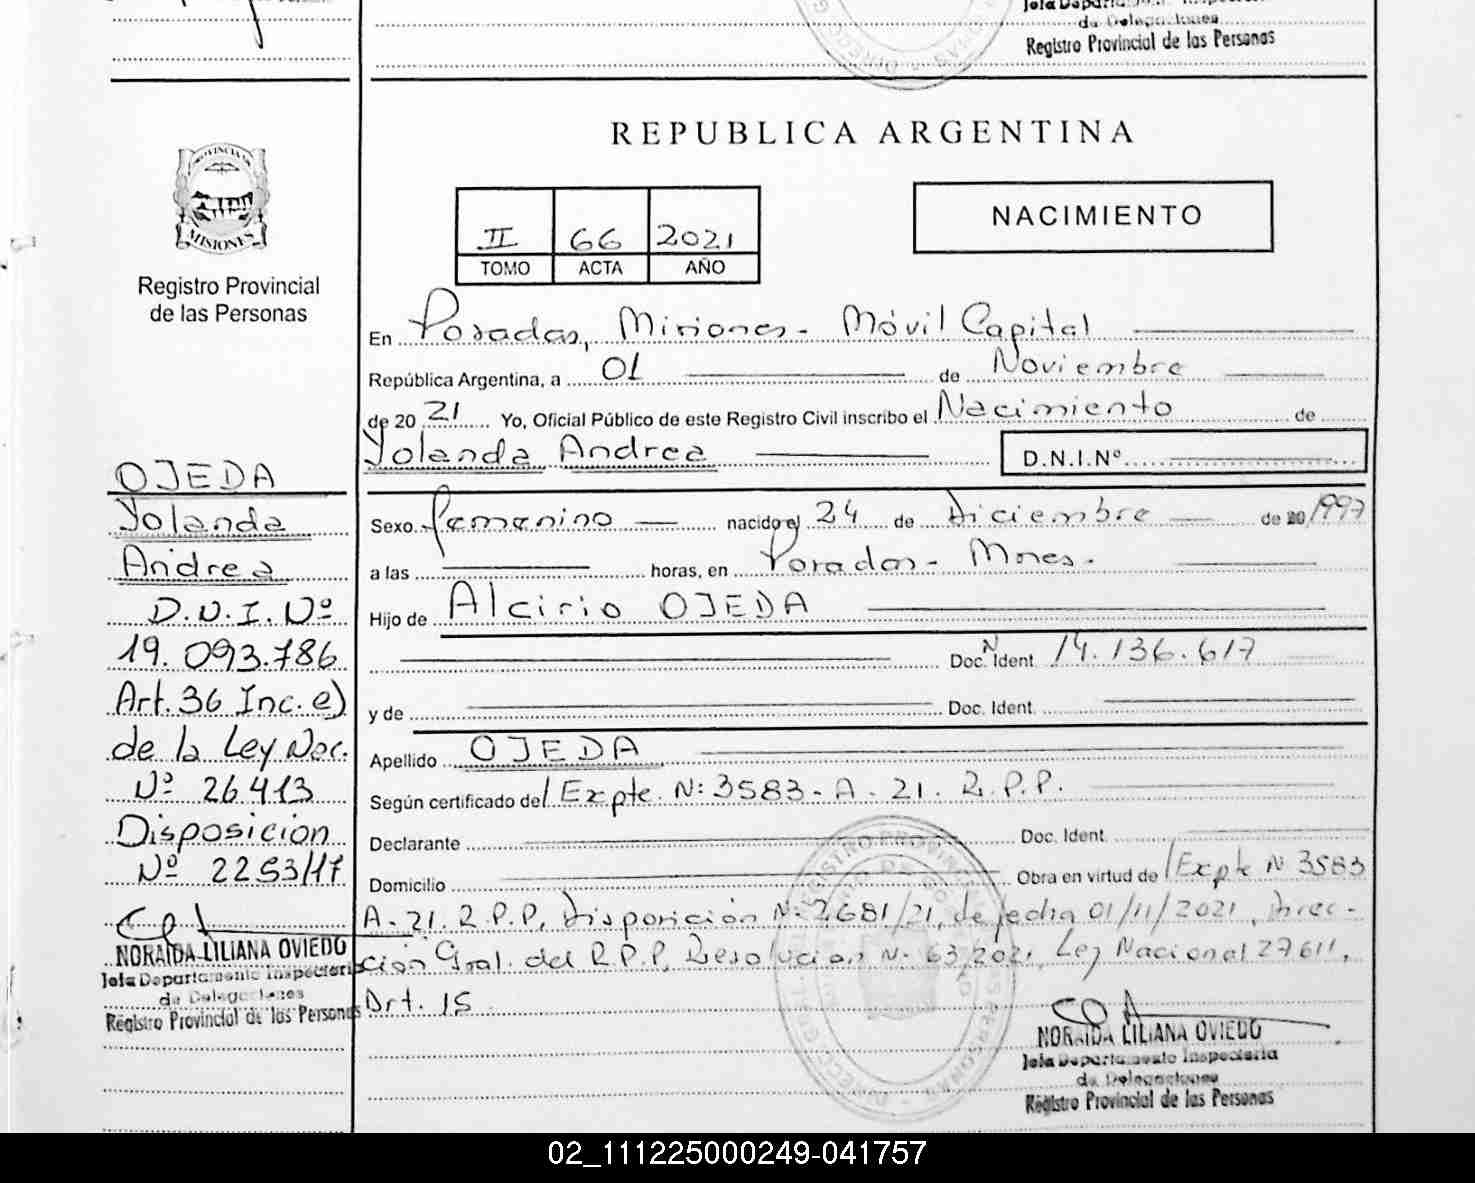 Jefe Departamento Inspectoría
de Delegaciones
Registro Provincial de las Personas
REPUBLICA ARGENTINA
PROVINCIA DE
MISIONES
Registro Provincial
de las Personas
II 66 2021
TOMO ACTA AÑO
NACIMIENTO
En Posadas, Misiones - Móvil Capital
República Argentina, a 01 de Noviembre
de 20 21 Yo, Oficial Público de este Registro Civil inscribo el Nacimiento de
Yolanda Andrea D.N.I.Nº
Sexo Femenino nacido el 24 de Diciembre de 20 1997
a las horas, en Posadas - Mnes.
Hijo de Alcirio OJEDA
Doc. Ident. Nº 14.136.617
y de Doc. Ident.
Apellido OJEDA
Según certificado de Expte. Nº: 3583 - A - 21. R.P.P.
Declarante Doc. Ident.
Domicilio Obra en virtud de Expte Nº 3583
A-21.R.P.P, Disposición Nº 2681/21, de fecha 01/11/2021, Direc-
ción Gral. del R.P.P, Resolución Nº 63/2021, Ley Nacional 27611,
Art. 15
OJEDA
Yolanda
Andrea
D.N.I. Nº
19.093.786
Art. 36 Inc. e)
de la Ley Nac.
Nº 26413
Disposición
Nº 2253/17
NORAIDA LILIANA OVIEDO
Jefa Departamento Inspectoría
de Delegaciones
Registro Provincial de las Personas
NORAIDA LILIANA OVIEDO
Jefa Departamento Inspectoría
de Delegaciones
Registro Provincial de las Personas
02_111225000249-041757